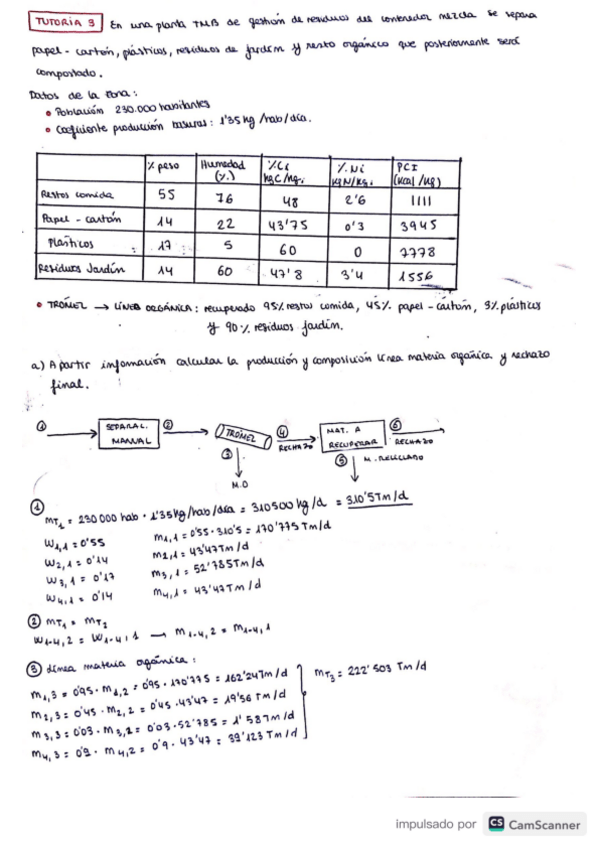 TUTORÍA 3 En una planta TMB de gestión de residuos del contenedor mezcla se separa
papel - cartón, plásticos, residuos de jardín y resto orgánico que posteriormente será
compostado.
Datos de la zona:
• Población 230.000 habitantes
• Coeficiente producción basuras: 1'35 kg/hab/día.
% peso Humedad (%) %Ci kgC/kgi %Ni kgN/kgi PCI (kcal/kg)
Restos comida 55 76 48 2'6 1111
Papel - cartón 14 22 43'75 0'3 3945
Plásticos 17 5 60 0 7778
Residuos Jardín 14 60 47'8 3'4 1556
• TRÓMEL → LÍNEA ORGÁNICA: recuperado 95% restos comida, 45% papel-cartón, 3% plásticos
y 90% residuos jardín.
a) A partir información calcular la producción y composición línea materia orgánica y rechazo
final.
① SEPARAC. MANUAL ② TRÓMEL ④ RECHAZO MAT. A RECUPERAR ⑥ RECHAZO
③ M.O ⑤ M. RECICLADO
①
mT1 = 230000 hab · 1'35kg/hab/día = 310500 kg/d = 310'5 Tm/d
W1,1 = 0'55 m1,1 = 0'55 · 310'5 = 170'775 Tm/d
W2,1 = 0'14 m2,1 = 43'47 Tm/d
W3,1 = 0'17 m3,1 = 52'785 Tm/d
W4,1 = 0'14 m4,1 = 43'47 Tm/d
② mT1 = mT2
W1-4,2 = W1-4,1 → m1-4,2 = m1-4,1
③ Línea materia orgánica:
m1,3 = 0'95 · m1,2 = 0'95 · 170'775 = 162'24 Tm/d
m2,3 = 0'45 · m2,2 = 0'45 · 43'47 = 19'56 Tm/d
m3,3 = 0'03 · m3,2 = 0'03 · 52'785 = 1'58 Tm/d
m4,3 = 0'9 · m4,2 = 0'9 · 43'47 = 39'123 Tm/d
mT3 = 222'503 Tm/d
impulsado por CS CamScanner